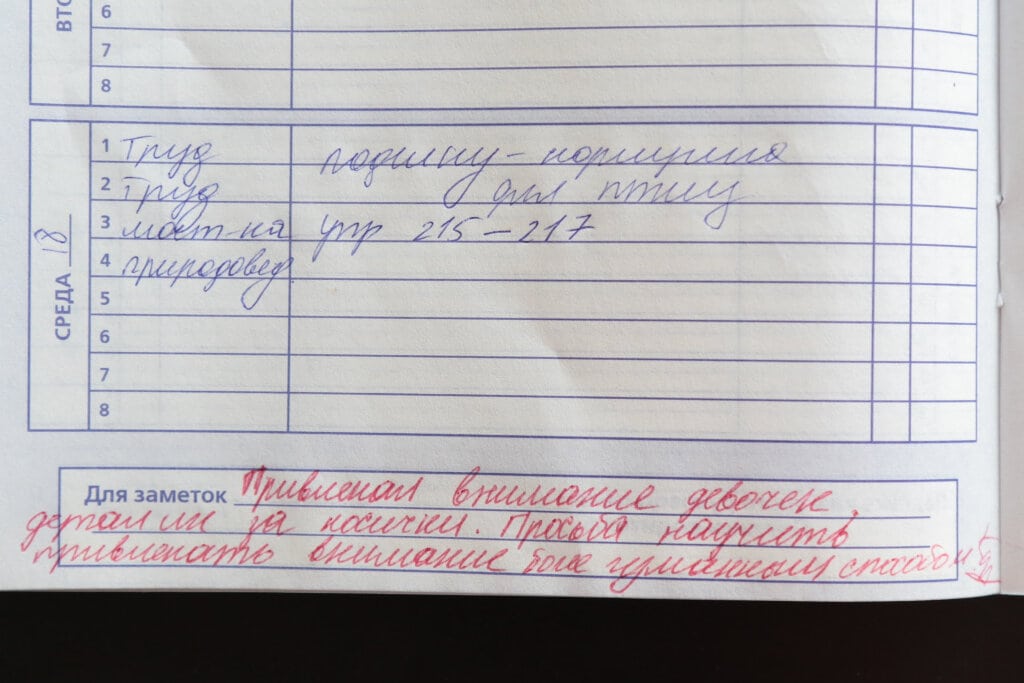 ВТО
6
7
8
СРЕДА 18
1 Труд
2 Труд для птиц
3 мат-ка упр 215 – 217
4 природовед.
5
6
7
8
Для заметок Привлекал внимание девочек,
за косички. Просьба научить
привлекать внимание более гуманным способом